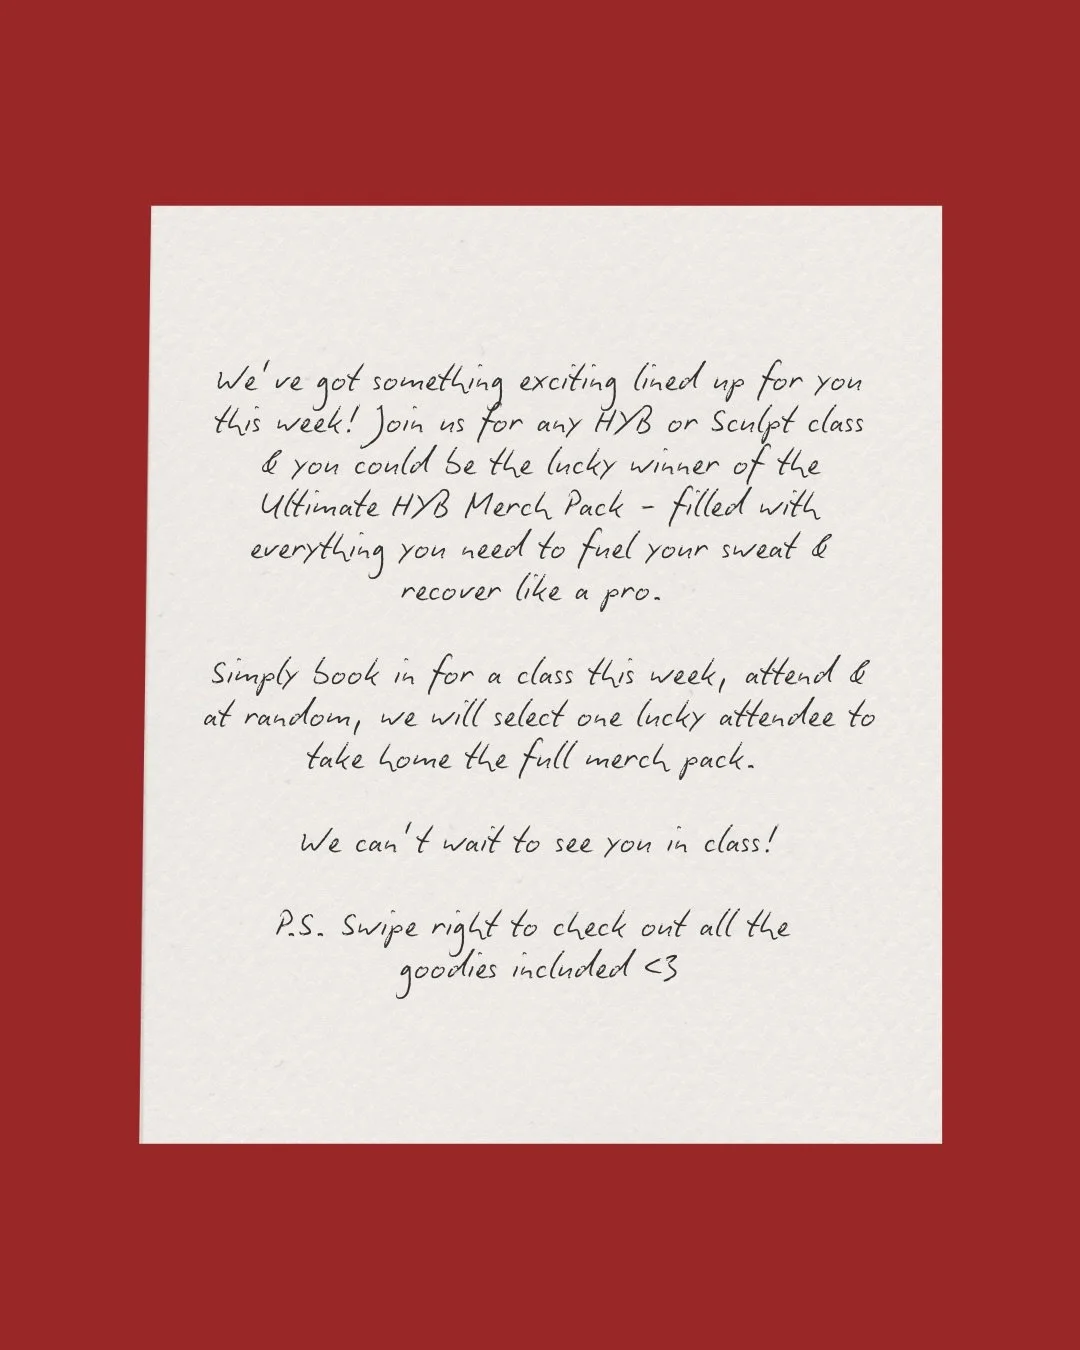 We've got something exciting lined up for you
this week! Join us for any HYB or Sculpt class
& you could be the lucky winner of the
Ultimate HYB Merch Pack - filled with
everything you need to fuel your sweat &
recover like a pro.
Simply book in for a class this week, attend &
at random, we will select one lucky attendee to
take home the full merch pack.
We can't wait to see you in class!
P.S. Swipe right to check out all the
goodies included <3